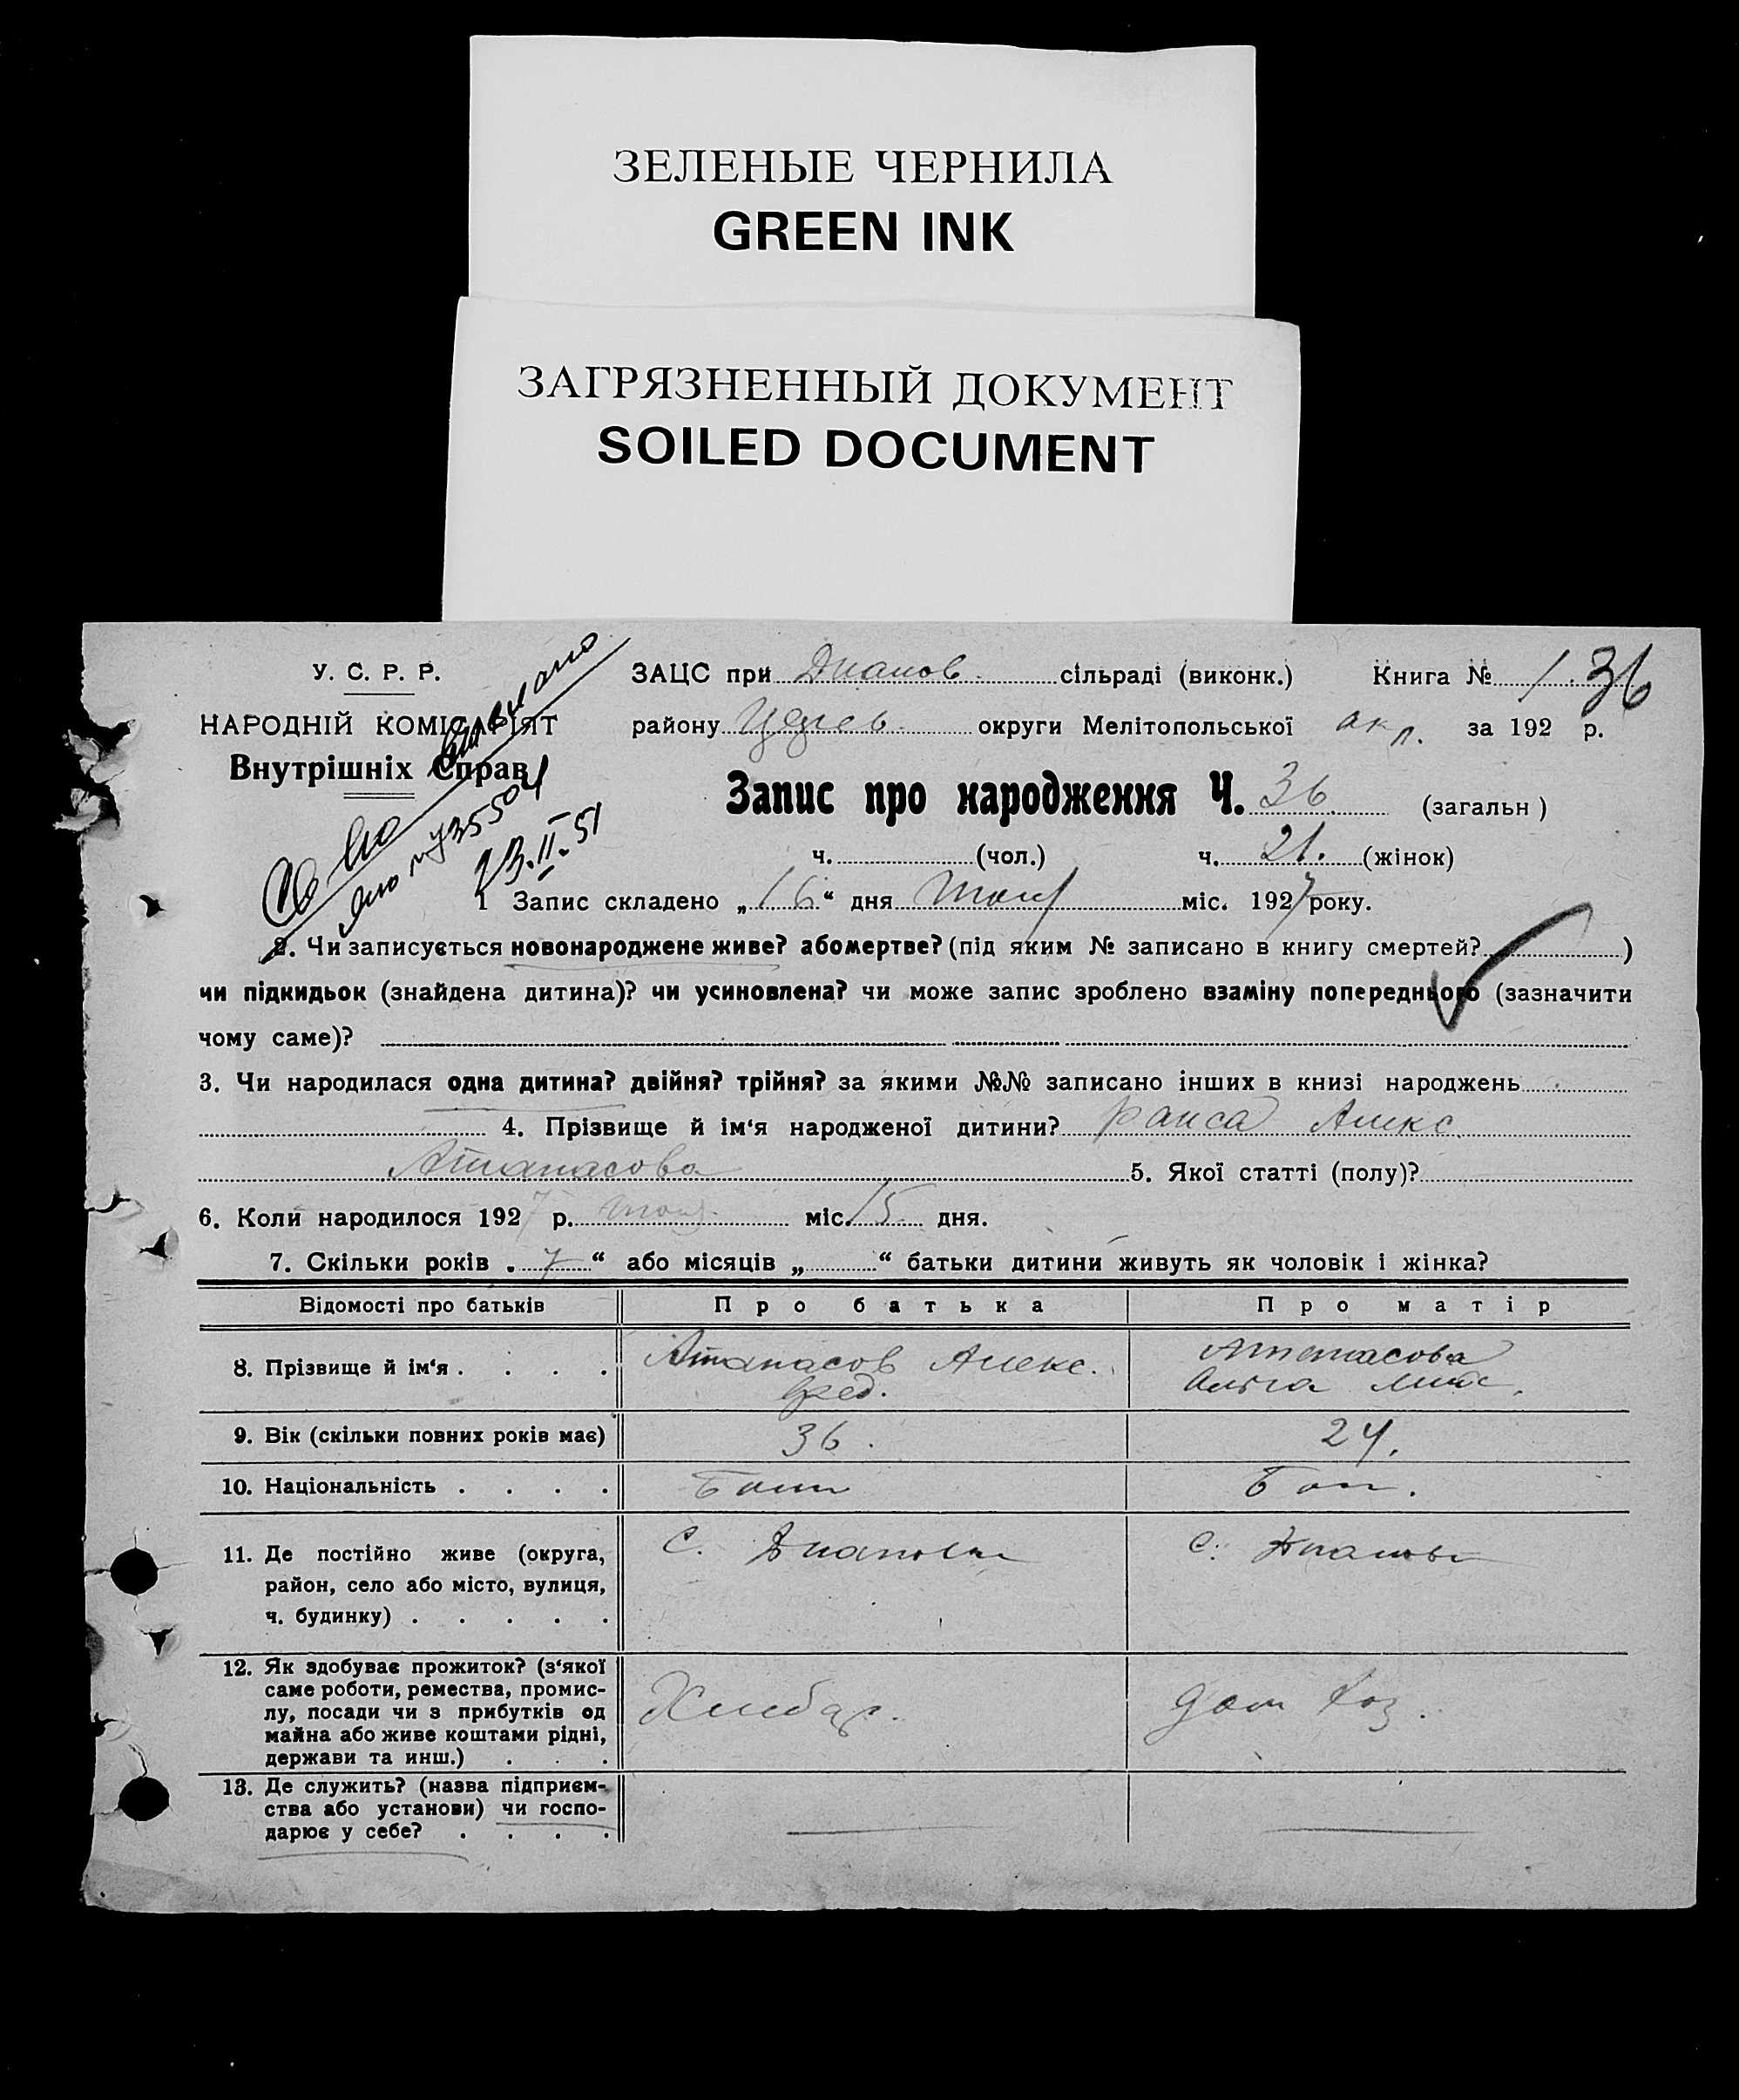 ЗЕЛЕНЫЕ ЧЕРНИЛА
GREEN INK
ЗАГРЯЗНЕННЫЙ ДОКУМЕНТ
SOILED DOCUMENT
У. С. Р. Р.
НАРОДНІЙ КОМІСАРІЯТ
Внутрішніх Справ
23.II.51
ЗАЦС при Дианов. сільраді (виконк.) Книга № 1. 36
району округи Мелітопольської за 192 р.
Запис про народження Ч. 36 (загальн)
ч. (чол.) ч. 21. (жінок)
1 Запис складено „16“ дня міс. 1927 року.
2. Чи записується новонароджене живе? або мертве? (під яким № записано в книгу смертей? )
чи підкидьок (знайдена дитина)? чи усиновлена? чи може запис зроблено взаміну попереднього (зазначити
чому саме)?
3. Чи народилася одна дитина? двійня? трійня? за якими №№ записано інших в книзі народжень
4. Прізвище й ім‘я народженої дитини? Раиса Алекс.
Атанасова 5. Якої статті (полу)?
6. Коли народилося 1927 р. міс. 15 дня.
7. Скільки років „7“ або місяців „ “ батьки дитини живуть як чоловік і жінка?
Відомості про батьків Про батька Про матір
8. Прізвище й ім‘я . . . . Атанасов Алекс. Атанасова
Ольга
9. Вік (скільки повних років має) 36. 24.
10. Національність . . . . Болг. Бол.
11. Де постійно живе (округа, с. Диановка с. Диановк
район, село або місто, вулиця,
ч. будинку) . . . . .
12. Як здобуває прожиток? (з‘якої
саме роботи, ремества, промис- Хлебор. дом хоз.
лу, посади чи з прибутків од
майна або живе коштами рідні,
держави та инш.) . . .
13. Де служить? (назва підприєм-
ства або установи) чи госпо-
дарює у себе? . . . .